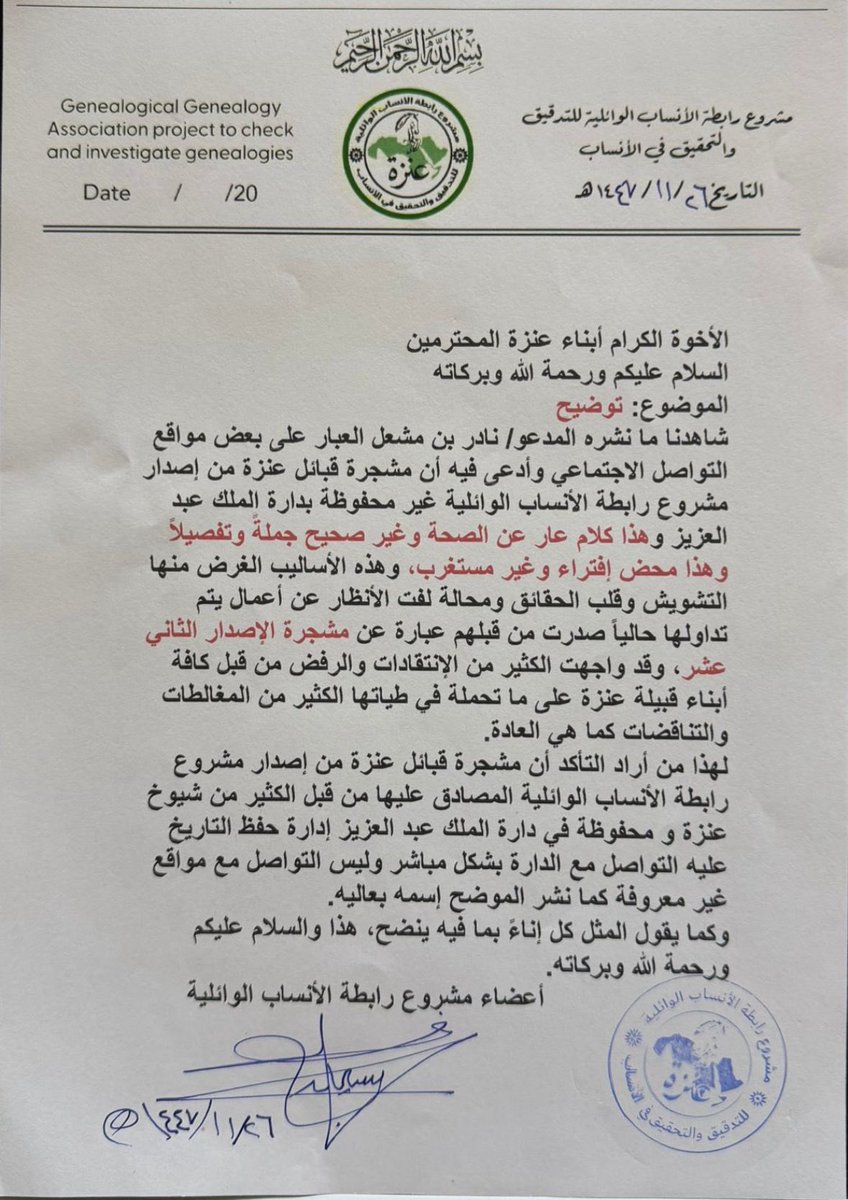 بسم الله الرحمن الرحيم
Genealogical Genealogy
Association project to check
and investigate genealogies
Date / /20
مشروع رابطة الأنساب الوائلية للتدقيق والتحقيق في الأنساب
عنزة
مشروع رابطة الأنساب الوائلية للتدقيق
والتحقيق في الأنساب
التاريخ ٢٦/ ١١/ ١٤٤٧هـ
الأخوة الكرام أبناء عنزة المحترمين
السلام عليكم ورحمة الله وبركاته
الموضوع: توضيح
شاهدنا ما نشره المدعو/ نادر بن مشعل العبار على بعض مواقع
التواصل الاجتماعي وأدعى فيه أن مشجرة قبائل عنزة من إصدار
مشروع رابطة الأنساب الوائلية غير محفوظة بدارة الملك عبد
العزيز وهذا كلام عار عن الصحة وغير صحيح جملةً وتفصيلاً
وهذا محض إفتراء وغير مستغرب، وهذه الأساليب الغرض منها
التشويش وقلب الحقائق ومحالة لفت الأنظار عن أعمال يتم
تداولها حالياً صدرت من قبلهم عبارة عن مشجرة الإصدار الثاني
عشر، وقد واجهت الكثير من الإنتقادات والرفض من قبل كافة
أبناء قبيلة عنزة على ما تحملة في طياتها الكثير من المغالطات
والتناقضات كما هي العادة.
لهذا من أراد التأكد أن مشجرة قبائل عنزة من إصدار مشروع
رابطة الأنساب الوائلية المصادق عليها من قبل الكثير من شيوخ
عنزة و محفوظة في دارة الملك عبد العزيز إدارة حفظ التاريخ
عليه التواصل مع الدارة بشكل مباشر وليس التواصل مع مواقع
غير معروفة كما نشر الموضح إسمه بعاليه.
وكما يقول المثل كل إناءً بما فيه ينضح، هذا والسلام عليكم
ورحمة الله وبركاته.
أعضاء مشروع رابطة الأنساب الوائلية
١٤٤٧/١١/٢٦هـ
مشروع رابطة الأنساب الوائلية للتدقيق والتحقيق في الأنساب
عنزة